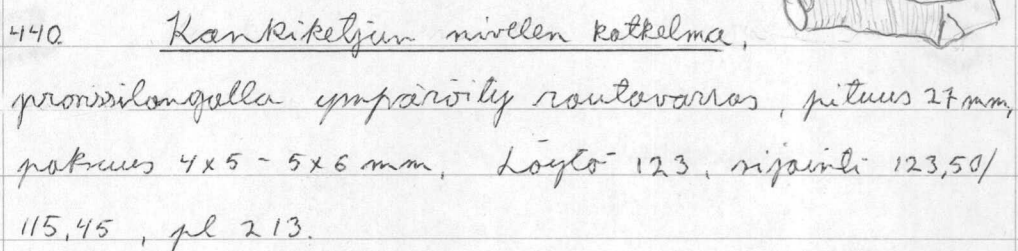 440. Kankiketjun nivelen katkelma,
pronssilangalla ympäröity rautavarras, pituus 27 mm,
paksuus 4x5 - 5x6 mm. Löytö 123, sijainti 123,50/
115,45, pl 213.